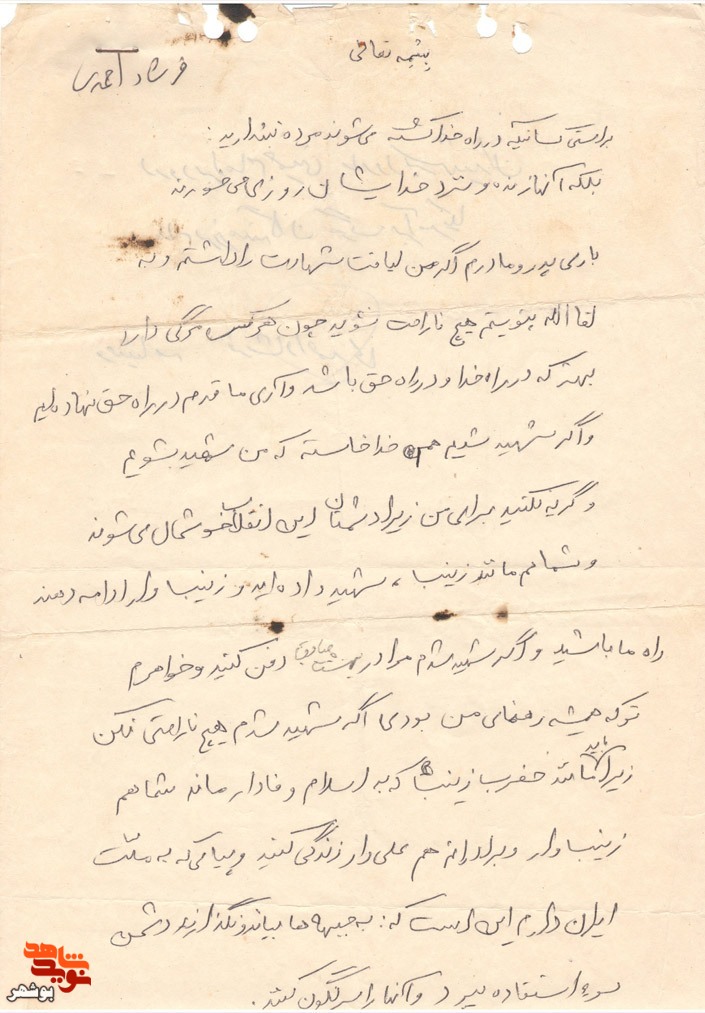 بسمه تعالی
فرشاد احمدی
براستی کسانیکه در راه خدا کشته می‌شوند مرده نپندارید:
بلکه آنها زنده و نزد خدایشان روزی می‌خورند
باری پدر و مادرم اگر من لیاقت شهادت را داشتم و به
لقاالله پیوستم هیچ ناراحت نشوید چون هر کس مرگی دارد
بهتر که در راه خدا و در راه حق باشد و آری ما قدم در راه حق نهاده‌ایم
و اگر شهید شیم خداخاسته که من شهید بشویم
و گریه نکنید برای من زیرا دشمنان این انقلاب خوشحال می‌شوند
و شما هم مانند زینب، شهید داده‌اید و زینب‌وار ادامه دهند
راه ما باشید و اگر شهید شدم مرا در بهشت صادق دفن کنید و خواهرم
تو که همیشه رهنمای من بودی اگر شهید شدم هیچ ناراحتی نکن
زیرا باید مانند حضرت زینب که به اسلام وفادار ماند شما هم
زینب‌وار و برادرانم هم علی‌وار زندگی کنید و پیامی که به ملت
ایران دارم این است که: به جبهه‌ها بیاند و نگذارند دشمن
سوء استفاده ببرد و آنها را سرنگون کنند.
شاهد
نوید
بوشهر